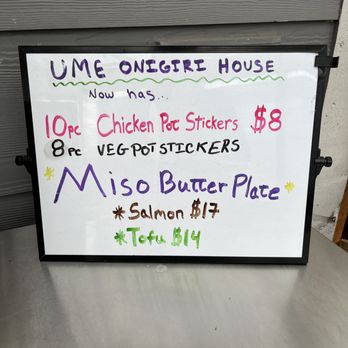 UME ONIGIRI HOUSE
Now has...
10pc Chicken Pot Stickers $8
8pc VEG POTSTICKERS
Miso Butter Plate
*Salmon $17
*Tofu $14